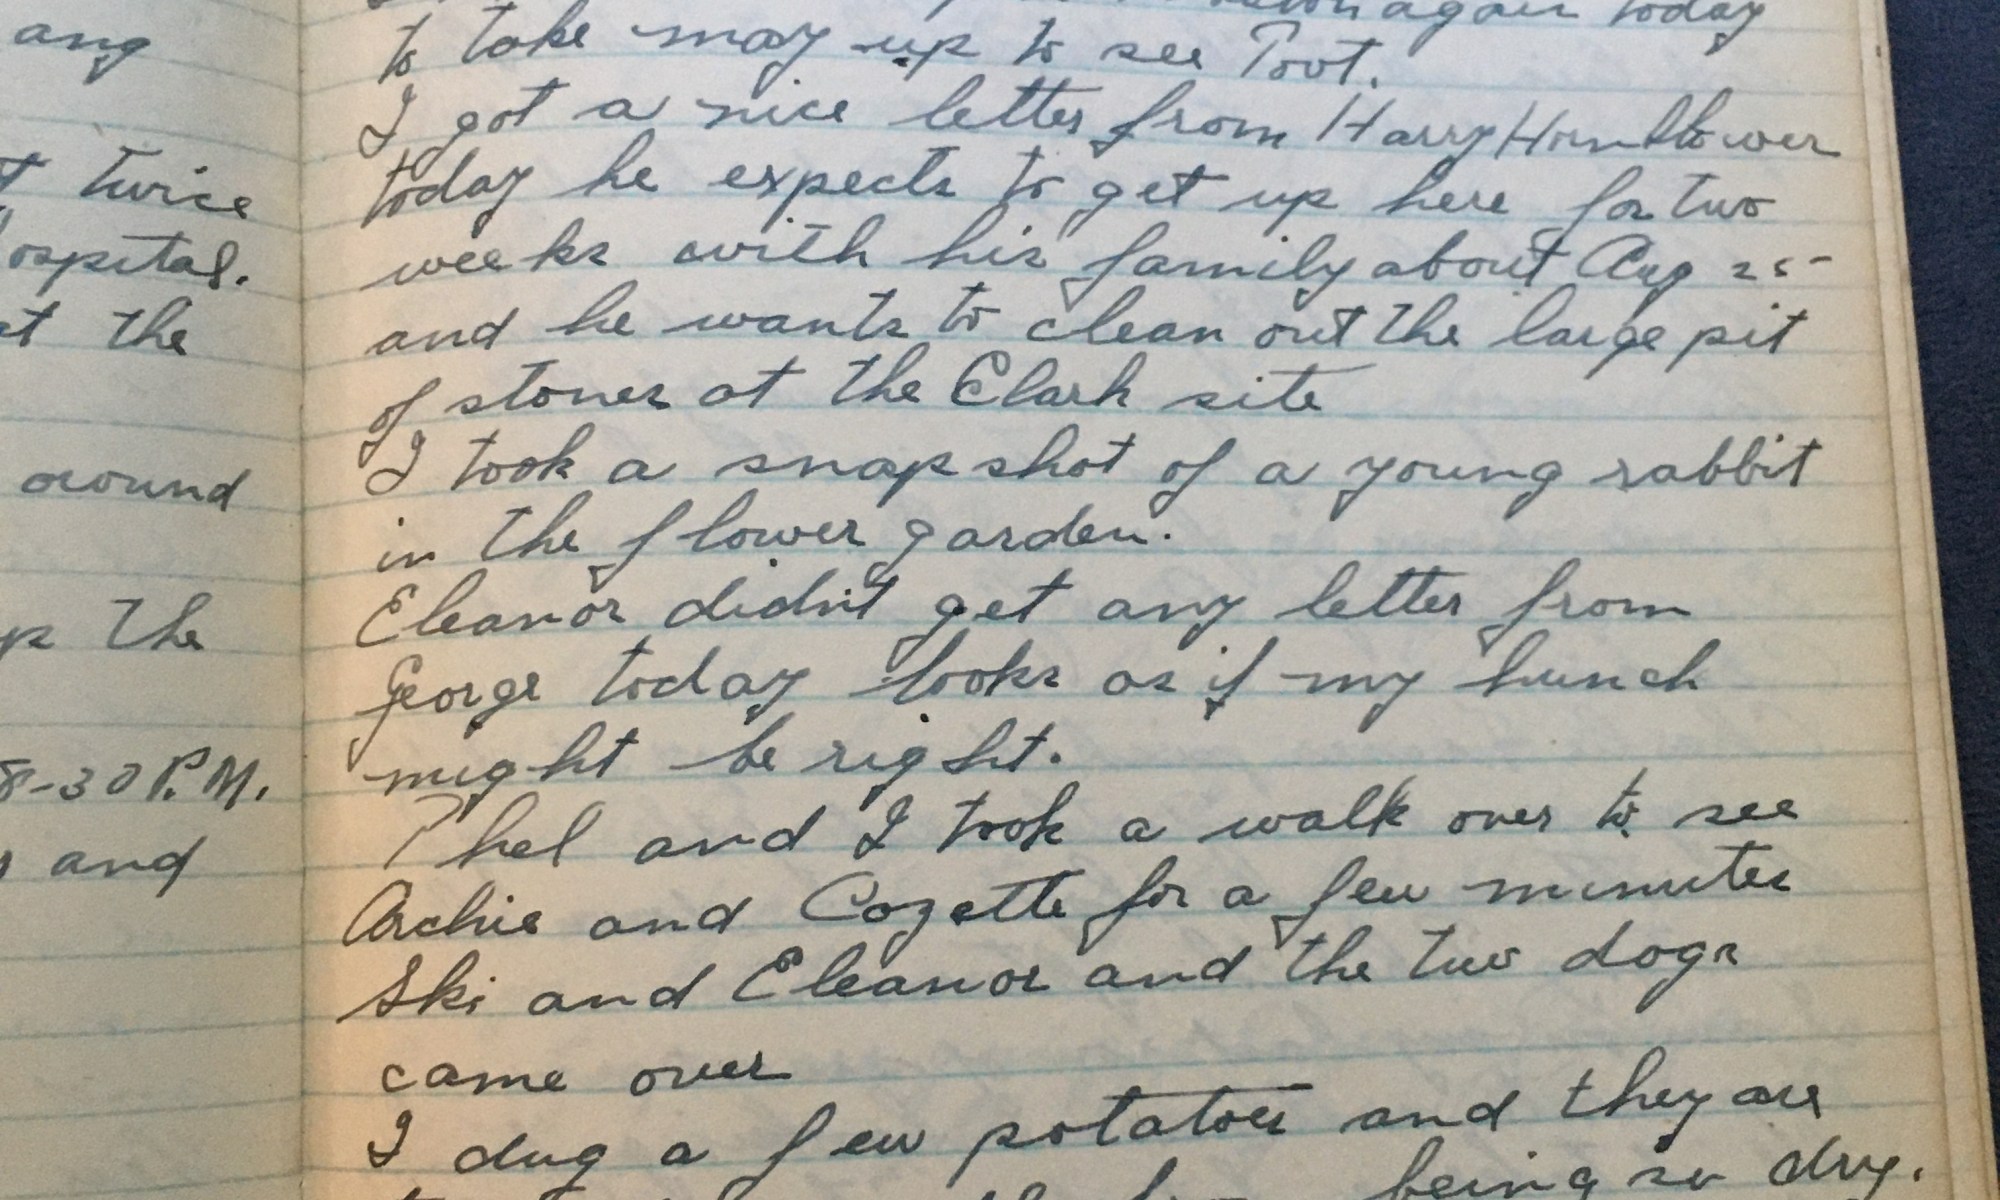 ang
twice
at the
around
the
8-30 P.M.
and
again today
to take may up to see Toot.
I got a nice letter from Harry Hornblower
today he expects to get up here for two
weeks with his family about Aug 25-
and he wants to clean out the large pit
of stones at the Clark site
I took a snap shot of a young rabbit
in the flower garden.
Eleanor didn't get any letter from
George today looks as if my hunch
might be right.
Phel and I took a walk over to see
Archie and Cozette for a few minutes
Ski and Eleanor and the two dogs
came over
I dug a few potatoes and they are
being so dry.